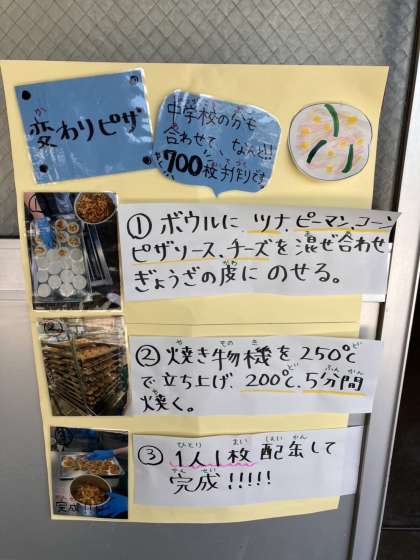 変わりピザ
中学校の分も
合わせて、なんと!!
700枚手作りです
① ボウルに ツナ、ピーマン、コーン
ピザソース、チーズを混ぜ合わせ
ぎょうざの皮に のせる。
② 焼き物機を250℃
で立ち上げ、200℃、5分間
焼く。
③ 1人1枚 配缶して
完成!!!!!
完成!!